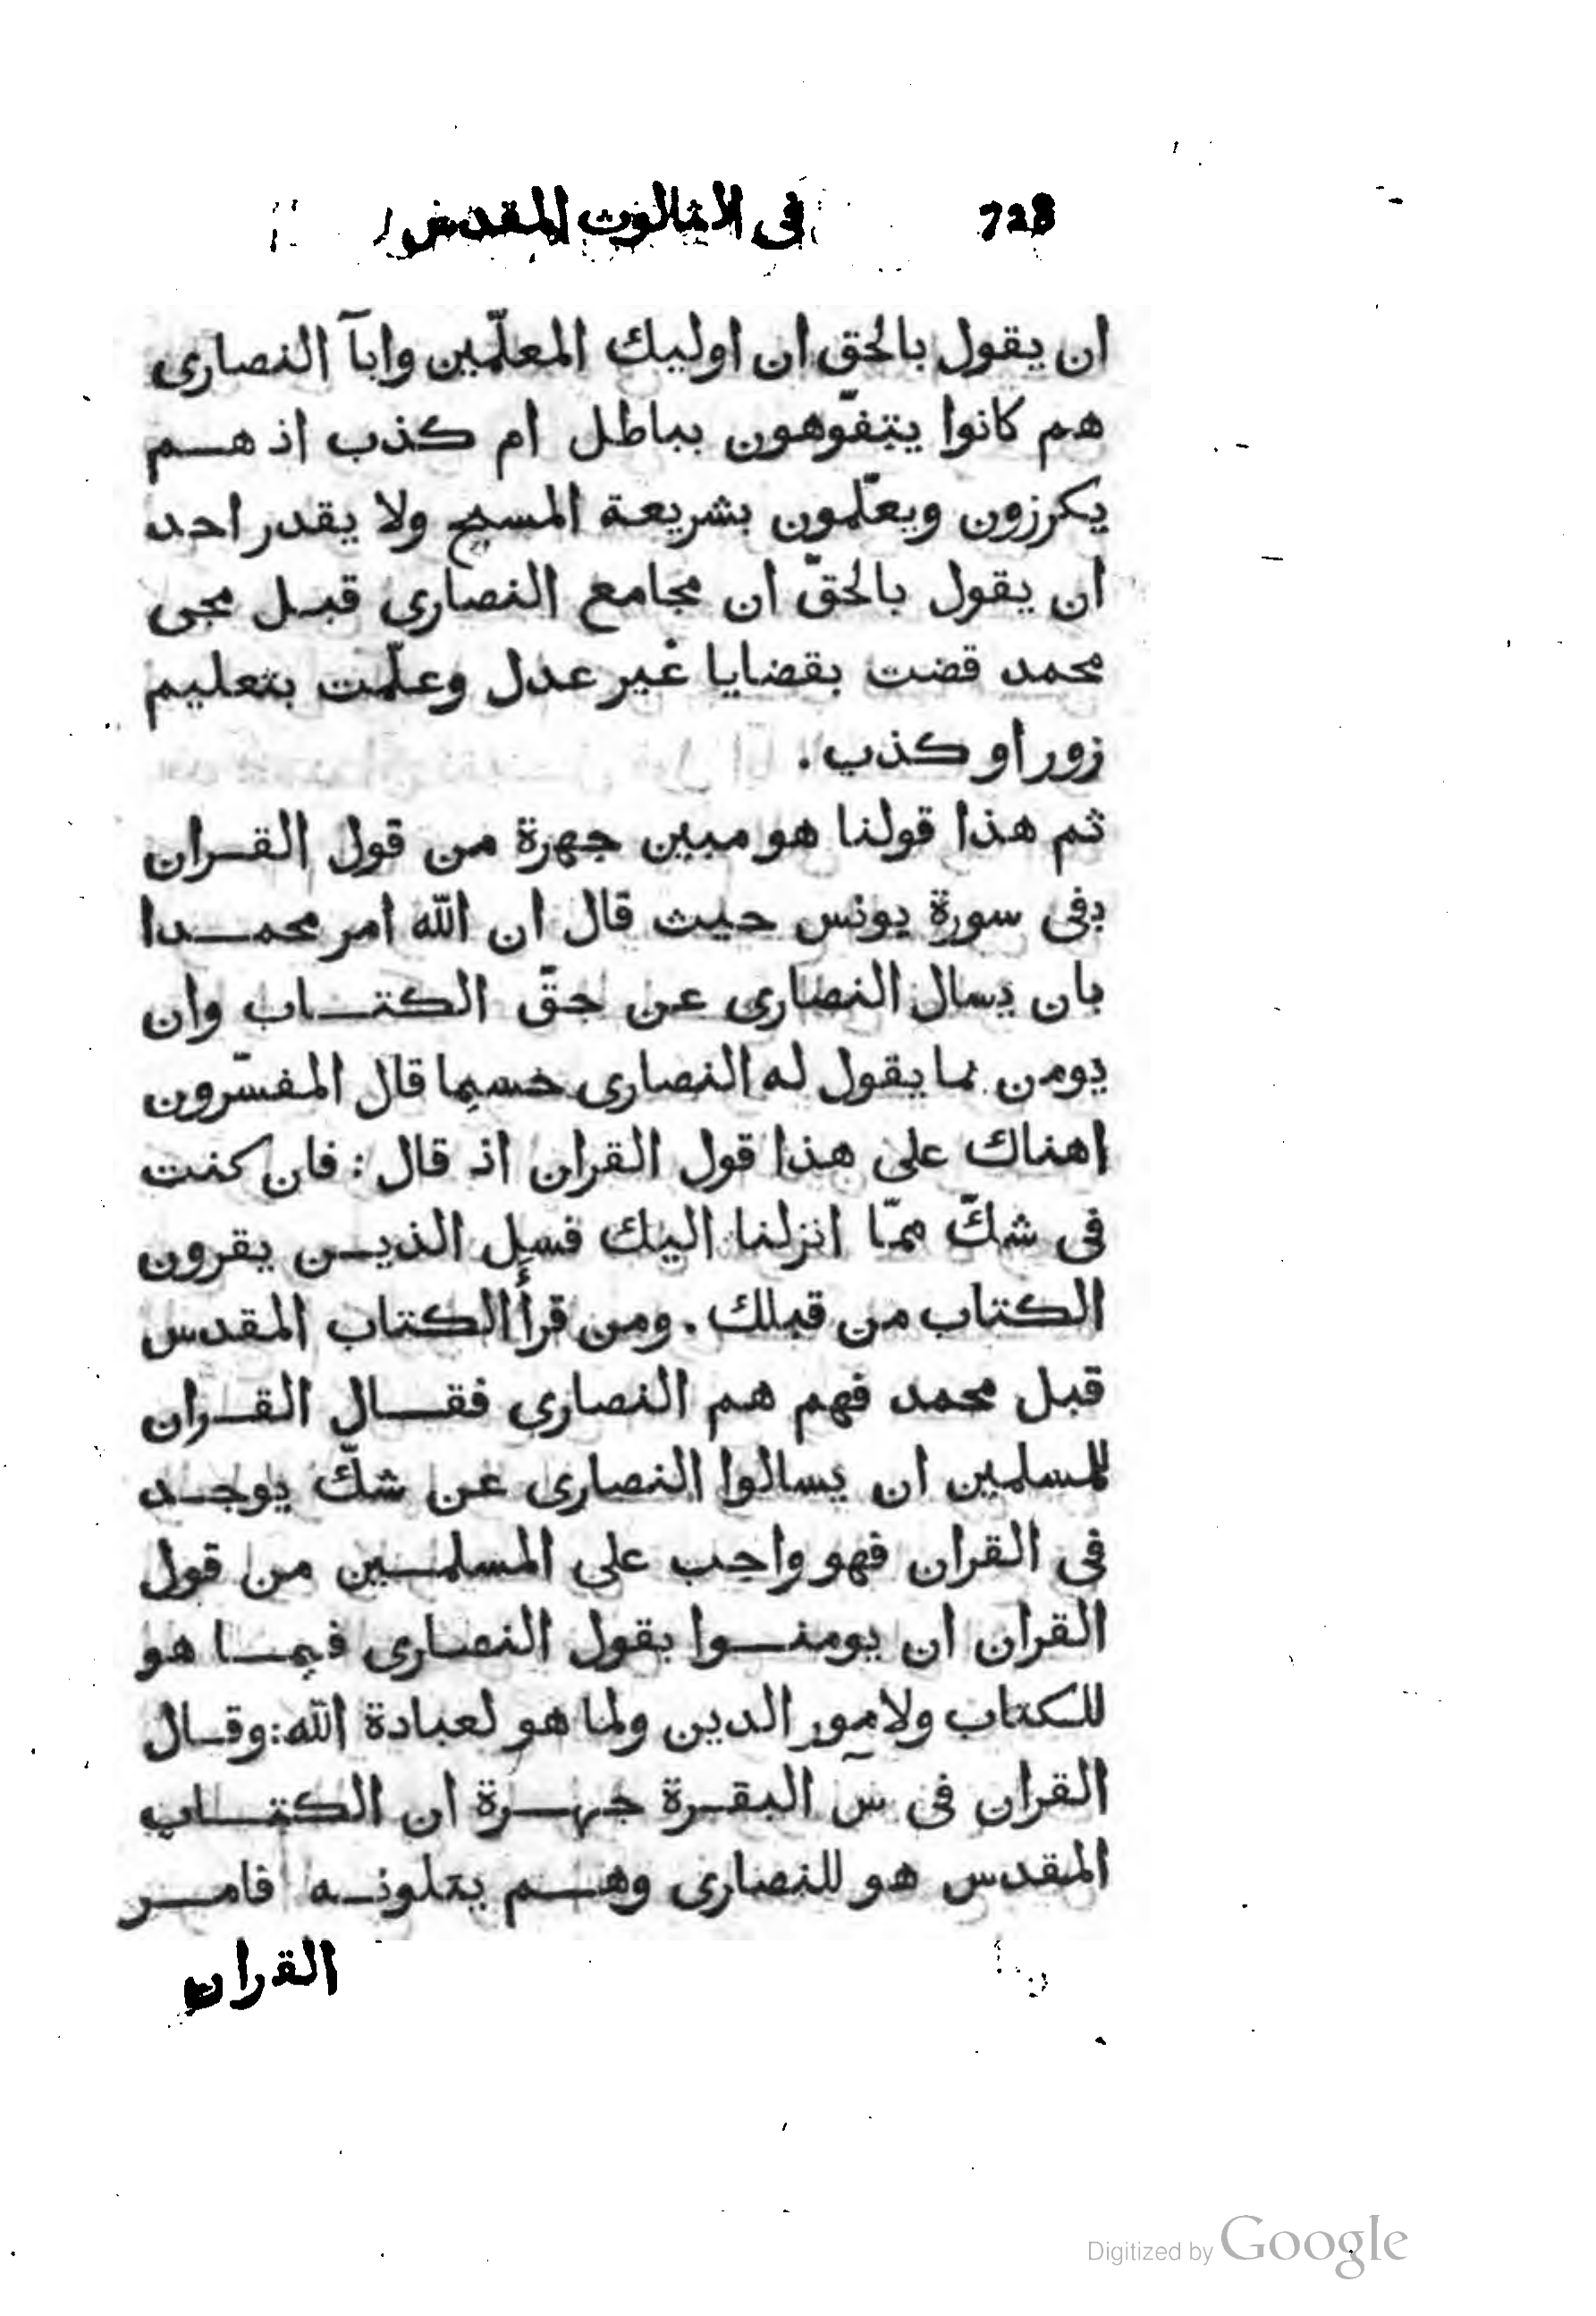 728 في الاثالوث المقدس
ان يقول بالحق ان اوليك المعلّمين وابآ النصارى
هم كانوا يتفوّهون بباطل ام كذب اذ هم
يكرزون ويعلّمون بشريعة المسيح ولا يقدر احد
ان يقول بالحقّ ان مجامع النصارى قبل مجى
محمد قضت بقضايا غير عدل وعلّمت بتعليم
زور او كذب .
ثم هذا قولنا هو مبين جهرة من قول القران
فى سورة يونس حيث قال ان الله امر محمدا
بان يسال النصارى عن حقّ الكتاب وان
يومن بما يقول له النصارى حسبما قال المفسّرون
اهناك على هذا قول القران اذ قال : فان كنت
فى شكّ ممّا انزلنا اليك فسل الذين يقرون
الكتاب من قبلك . ومن قرأ الكتاب المقدس
قبل محمد فهم هم النصارى فقال القران
للمسلمين ان يسالوا النصارى عن شكّ يوجد
فى القران فهو واجب على المسلمين من قول
القران ان يومنوا بقول النصارى فيما هو
للكتاب ولامور الدين ولما هو لعبادة الله : وقال
القران فى سٓ البقرة جهرة ان الكتاب
المقدس هو للنصارى وهم يتلونه فامر
القران
Digitized by Google